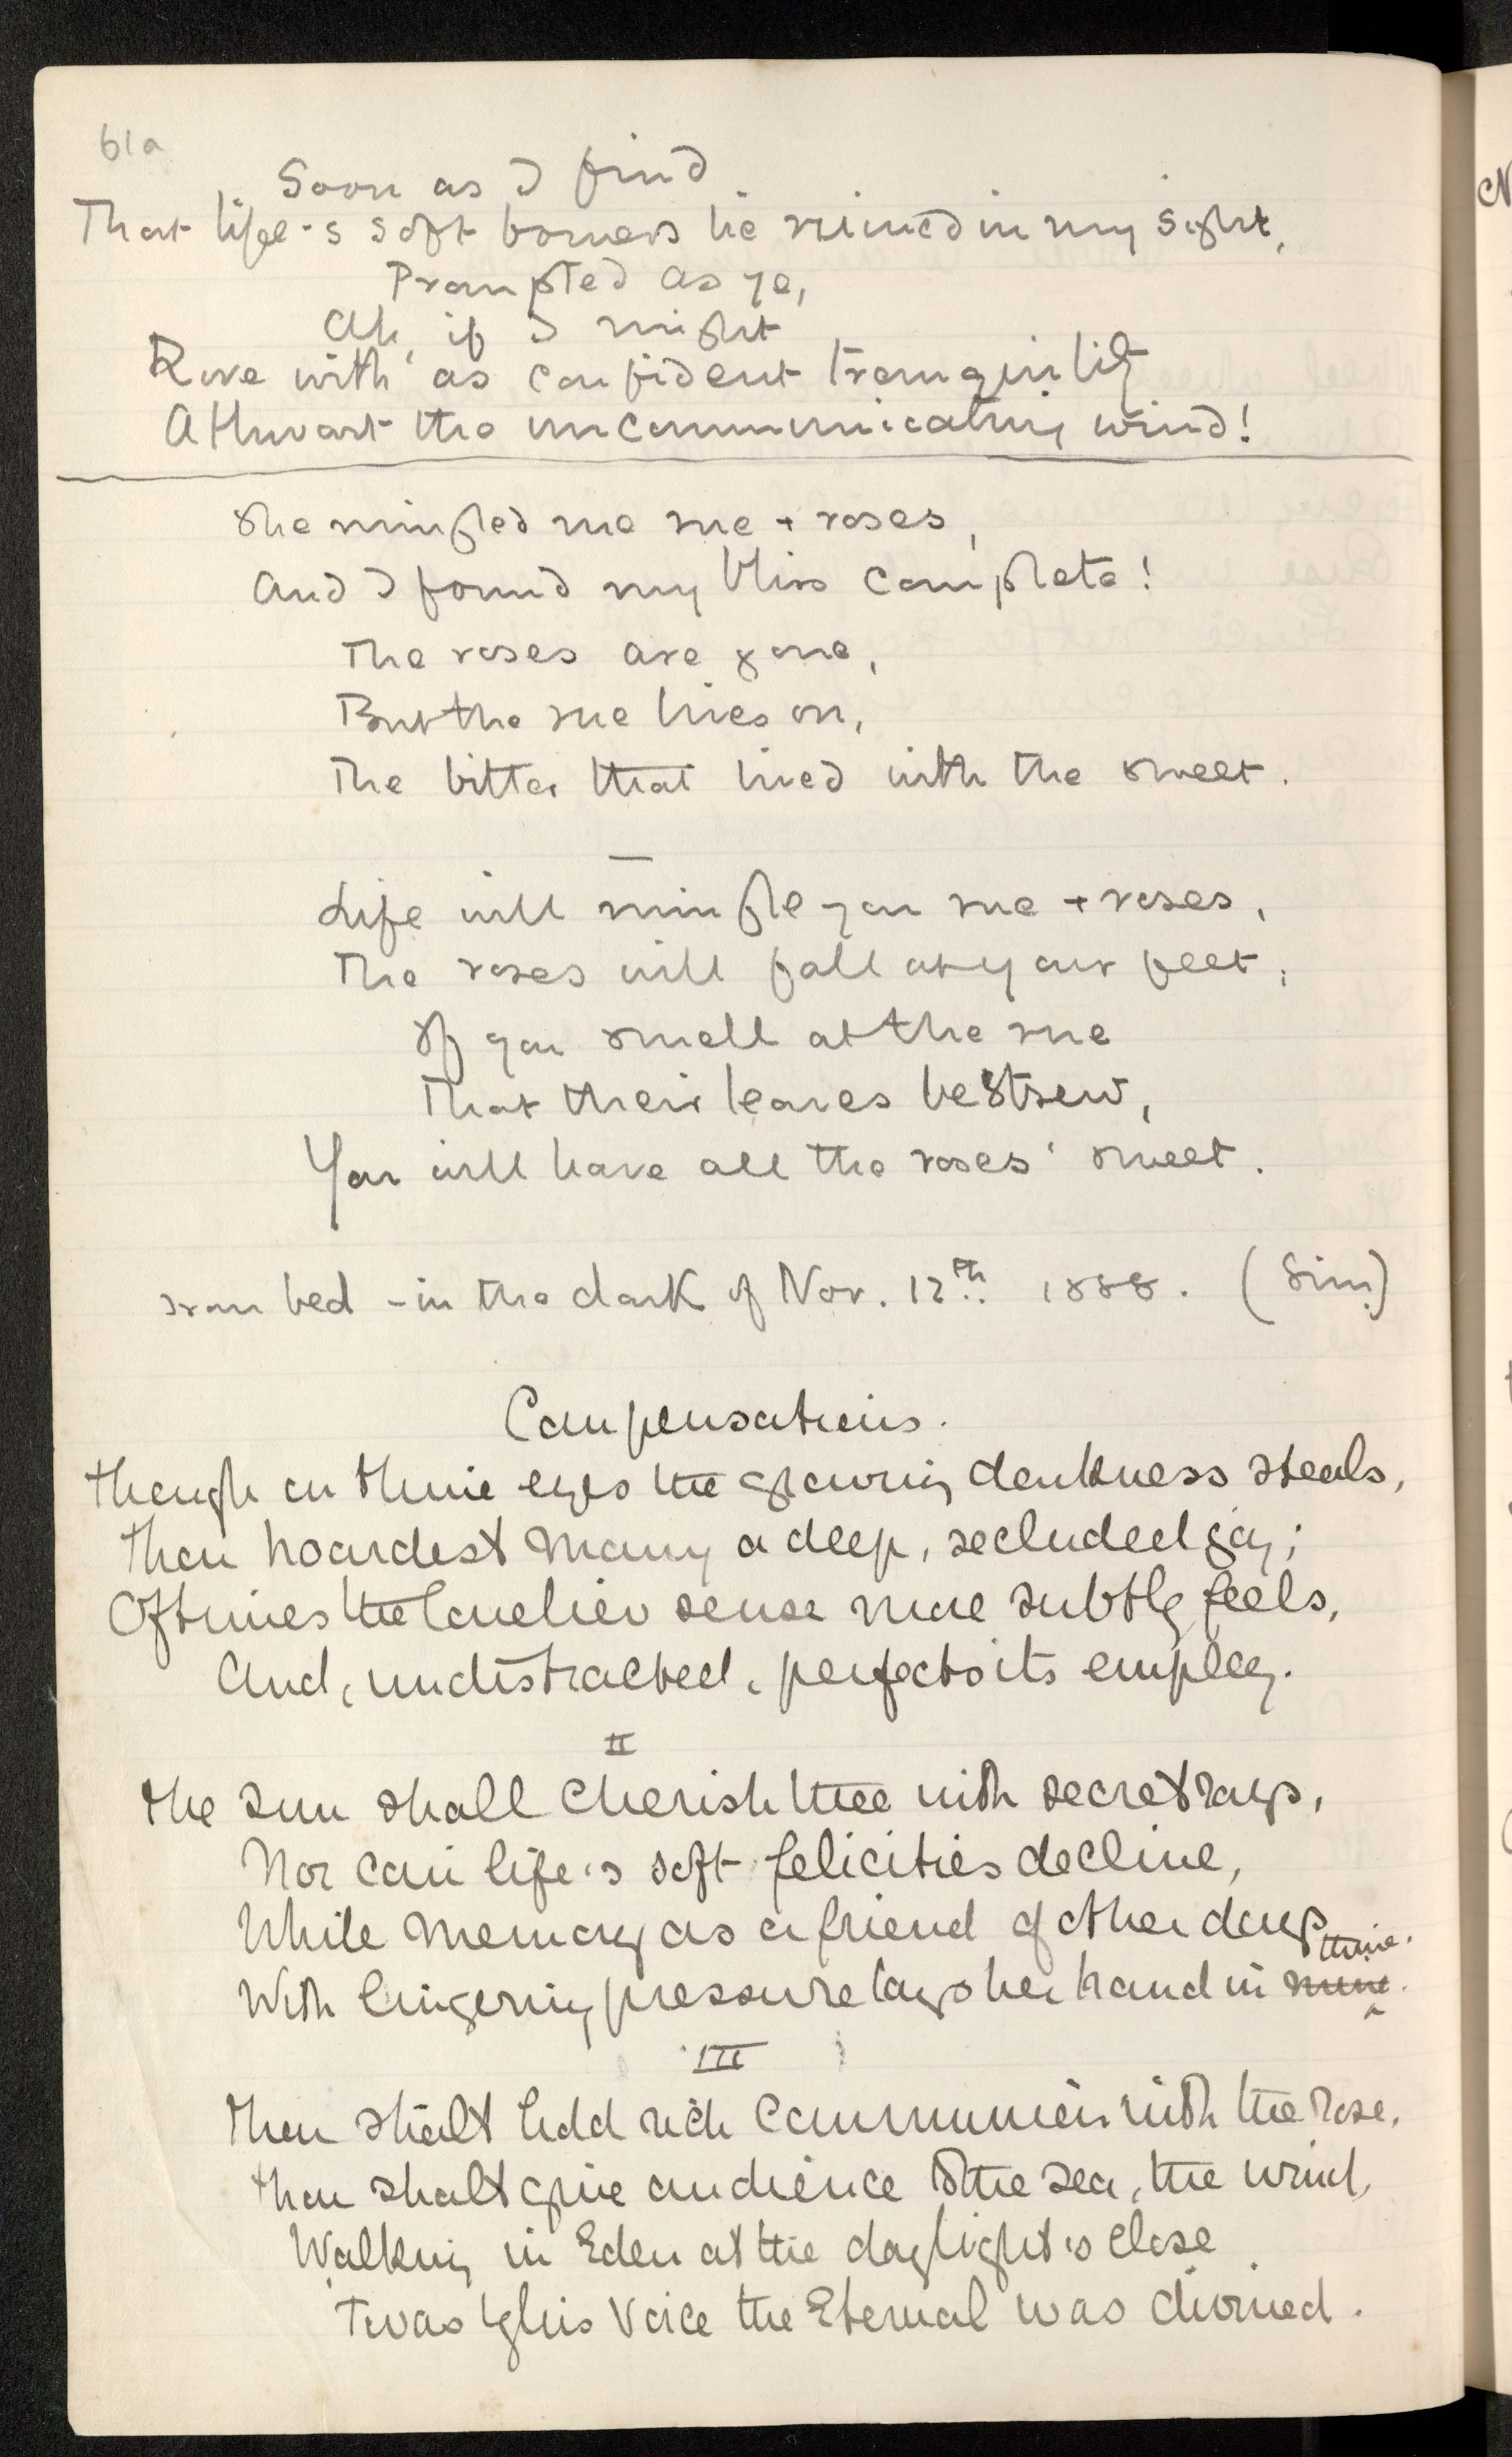 61a
Soon as I find
That life's soft bowers lie ruined in my sight,
Prompted as ye,
Ah, if I might
Rove with as confident tranquility
Athwart the uncommunicating wind!
She mingled me rue + roses,
And I found my bliss complete!
The roses are gone,
But the rue lives on,
The bitter that lived with the sweet.
Life will mingle you rue + roses,
The roses will fall at your feet;
If you smell at the rue
That their leaves bestrew,
You will have all the roses' sweet.
bed - in the dark of Nov. 12th 1888. (Sim)
Compensations.
Though on thine eyes the growing darkness steals,
Thou hoardest many a deep, secluded joy;
Oftimes the lonelier sense more subtly feels,
And, undistracted, perfects its employ.
II
The sun shall cherish thee with secret rays,
Nor can life's soft felicities decline,
While Memory as a friend of other days
thine.
With lingering pressure lays her hand in mine.
III
Thou shalt hold rich communion with the rose,
Thou shalt give audience to the sea, the wind,
Walking in Eden at the daylight's close
'Twas by his Voice the Eternal was divined.